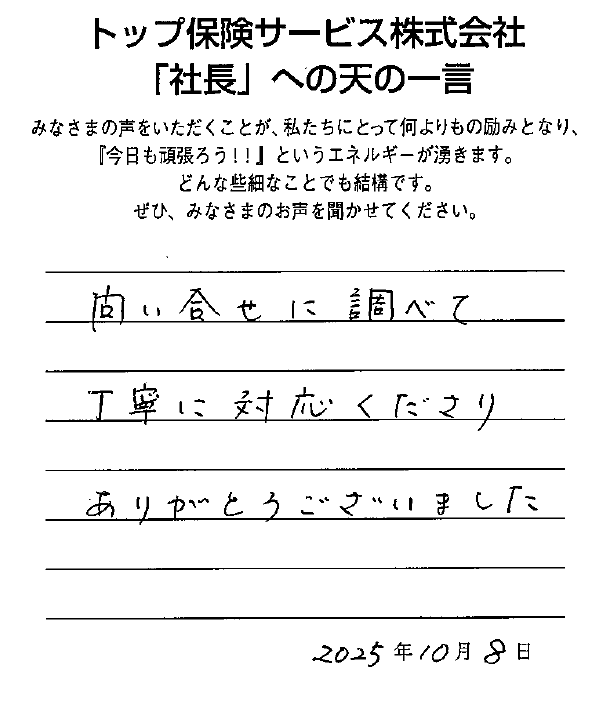 トップ保険サービス株式会社
「社長」への天の一言
みなさまの声をいただくことが、私たちにとって何よりもの励みとなり、
『今日も頑張ろう!!』というエネルギーが湧きます。
どんな些細なことでも結構です。
ぜひ、みなさまのお声を聞かせてください。
問い合せに調べて
丁寧に対応くださり
ありがとうございました
2025年10月8日